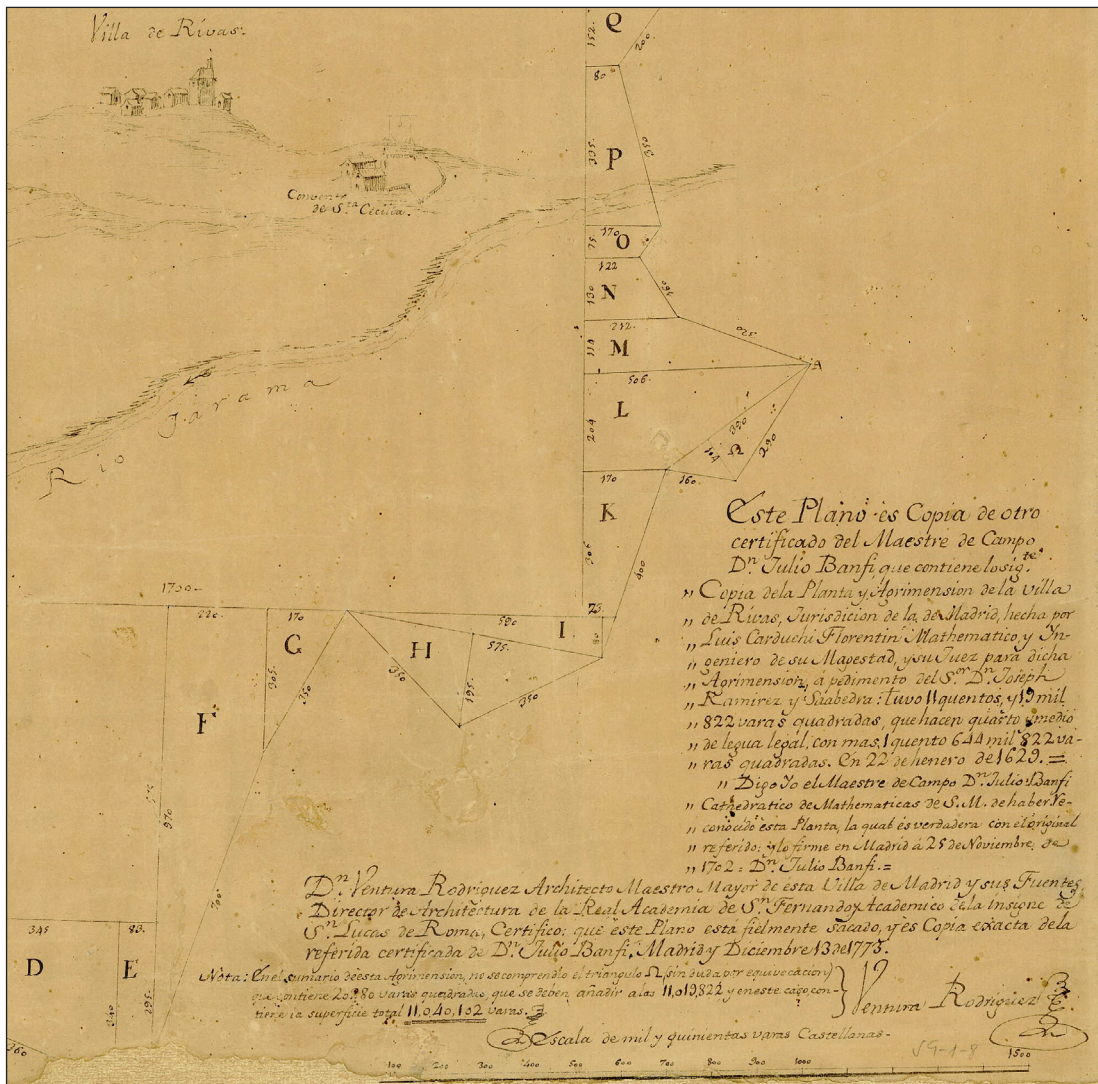 Villa de Rivas:
Convento
de S.ta Cecilia.
Rio Jarama
Q
152.
200
80
P
335
350
170
O
75
122
N
130
160
212.
M
114
506.
L
204
390
Ω
104
290
160
170
K
306
400
1700
220
170
G
305
350
H
580
I
75.
80
575
195
350
350
F
970
700
345
D
83.
E
340
295
360
Este Plano es Copia de otro
certificado del Maestre de Campo
D.n Julio Banfi, que contiene lo sig.te
„ Copia dela Planta y Agrimension de la villa
„ de Rivas, Jurisdicion de la de Madrid, hecha por
„ Luis Carduchi Florentin Mathematico, y Yn-
„ geniero de su Magestad, y su Juez para dicha
„ Agrimension, á pedimento del S.or D.n Joseph
„ Ramirez y Saabedra: tuvo 11 quentos, y 19 mil
„ 822 varas quadradas, que hacen quarto y medio
„ de legua legal, con mas, 1 quento 644 mil 822 va-
„ ras quadradas. En 22 de henero de 1629. =
„ Digo Yo el Maestre de Campo D.n Julio Banfi
„ Cathedratico de Mathematicas de S. M. de haber Re-
„ conocido esta Planta, la qual és verdadera con el original
„ referido; y lo firme en Madrid á 25 de Noviembre, de
„ 1702 = D.n Julio Banfi. =
D.n Ventura Rodriguez Architecto Maestro Mayor de esta Villa de Madrid y sus Fuentes,
Director de Architectura de la Real Academia de S.n Fernando y Academico de la Insigne de
S.n Lucas de Roma, Certifico: que este Plano está fielmente sacado, y és Copia exacta de la
referida certificada de D.n Julio Banfi, Madrid y Diciembre 13 de 1773.
Nota: En el sumario de esta Agrimension, no se comprendió el triangulo Ω (sin duda por equivocacion)
que contiene 20280 varas quadradas, que se deben añadir a las 11,019,822 y en este caso, con-
tiene la superficie total 11,040,102 varas.
Ventura Rodriguez
Escala de mil y quinientas varas Castellanas.
100 200 300 400 500 600 700 800 900 1000 1500